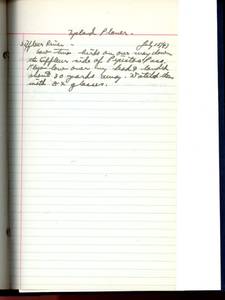 Upland Plover.
Siffleur River - July 15/43
Saw two birds on our way down
the Siffleur side of Pipestone Pass.
Flew low over my head & landed
about 30 yards away. Watched them
with 8x glasses.